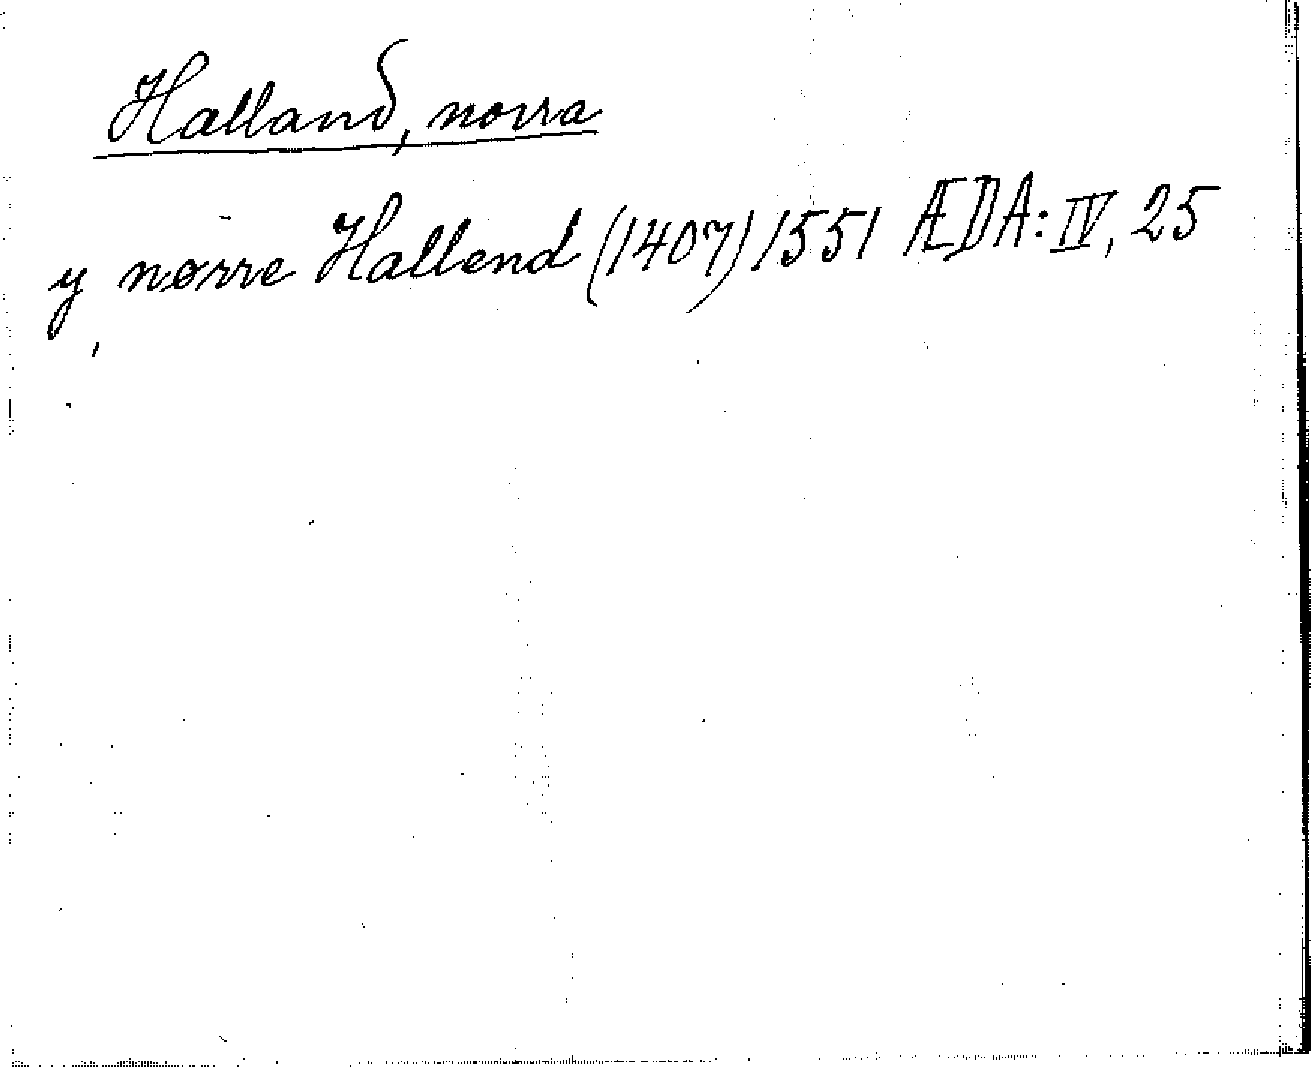 Halland, norra
y nørre Hallend (1407) 1551 ÆDA: IV, 25